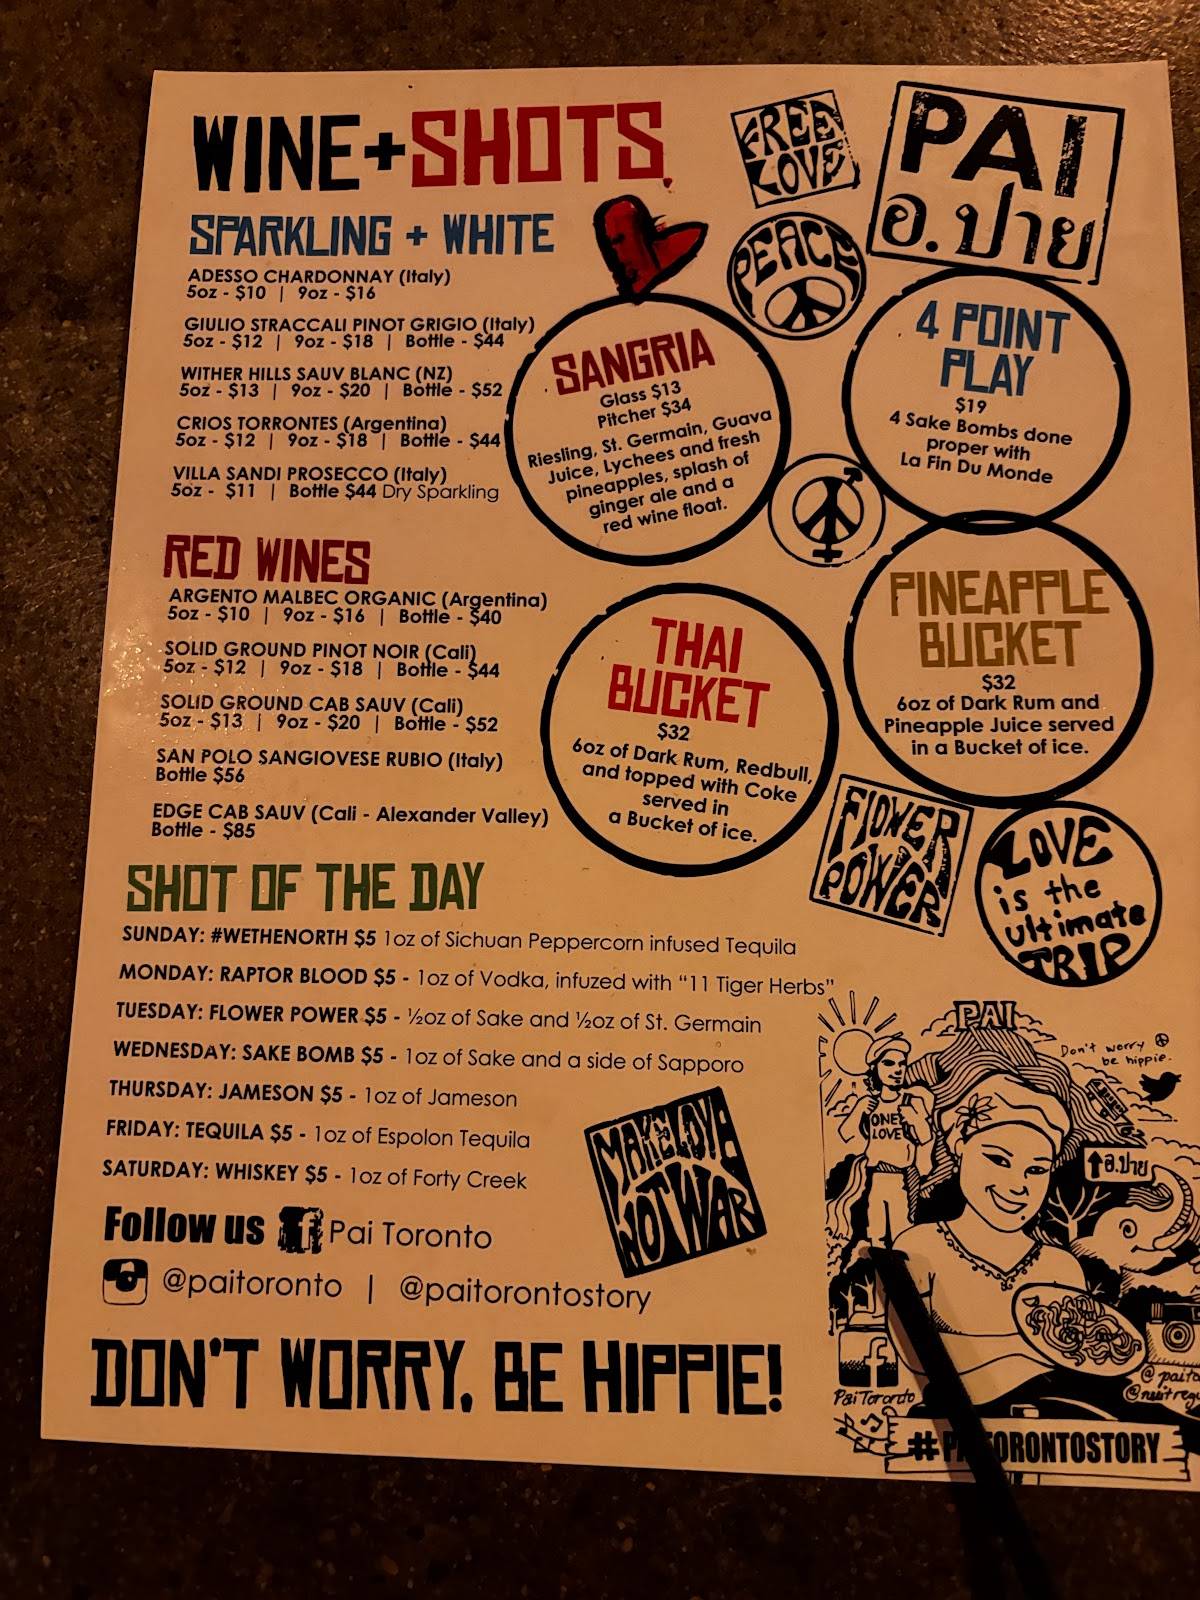 WINE+SHOTS
SPARKLING + WHITE
ADESSO CHARDONNAY (Italy)
5oz - $10 | 9oz - $16
GIULIO STRACCALI PINOT GRIGIO (Italy)
5oz - $12 | 9oz - $18 | Bottle - $44
WITHER HILLS SAUV BLANC (NZ)
5oz - $13 | 9oz - $20 | Bottle - $52
CRIOS TORRONTES (Argentina)
5oz - $12 | 9oz - $18 | Bottle - $44
VILLA SANDI PROSECCO (Italy)
5oz - $11 | Bottle $44 Dry Sparkling
RED WINES
ARGENTO MALBEC ORGANIC (Argentina)
5oz - $10 | 9oz - $16 | Bottle - $40
SOLID GROUND PINOT NOIR (Cali)
5oz - $12 | 9oz - $18 | Bottle - $44
SOLID GROUND CAB SAUV (Cali)
5oz - $13 | 9oz - $20 | Bottle - $52
SAN POLO SANGIOVESE RUBIO (Italy)
Bottle $56
EDGE CAB SAUV (Cali - Alexander Valley)
Bottle - $85
FREE
LOVE
PEACE
PAI
อ.ปาย
SANGRIA
Glass $13
Pitcher $34
Riesling, St. Germain, Guava
Juice, Lychees and fresh
pineapples, splash of
ginger ale and a
red wine float.
4 POINT
PLAY
$19
4 Sake Bombs done
proper with
La Fin Du Monde
THAI
BUCKET
$32
6oz of Dark Rum, Redbull,
and topped with Coke
served in
a Bucket of ice.
PINEAPPLE
BUCKET
$32
6oz of Dark Rum and
Pineapple Juice served
in a Bucket of ice.
FLOWER
POWER
LOVE
is the
ultimate
TRIP
SHOT OF THE DAY
SUNDAY: #WETHENORTH $5 1oz of Sichuan Peppercorn infused Tequila
MONDAY: RAPTOR BLOOD $5 - 1oz of Vodka, infuzed with “11 Tiger Herbs”
TUESDAY: FLOWER POWER $5 - ½oz of Sake and ½oz of St. Germain
WEDNESDAY: SAKE BOMB $5 - 1oz of Sake and a side of Sapporo
THURSDAY: JAMESON $5 - 1oz of Jameson
FRIDAY: TEQUILA $5 - 1oz of Espolon Tequila
SATURDAY: WHISKEY $5 - 1oz of Forty Creek
MAKE LOVE
NOT WAR
Follow us f Pai Toronto
@paitoronto | @paitorontostory
DON'T WORRY, BE HIPPIE!
PAI
Don't worry
be hippie.
ONE
LOVE
อ.ปาย
f
Pai Toronto